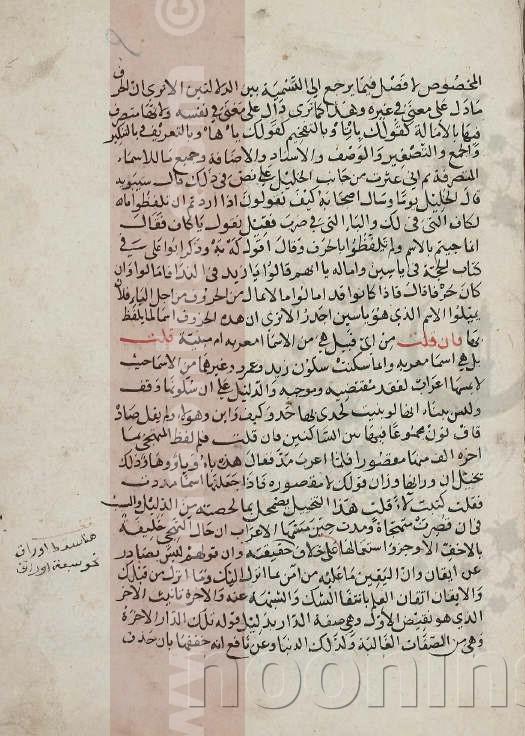 المخصوص لا فضل فيما يرجع الى التسمية بين الدلالتين الا ترى ان الحرف
ما دل على معنى في غيره وهذا كما ترى دال على معنى في نفسه ولانها متصرف
فيها بالامالة كقولك با تا وبالتفخيم كقولك يا ها وبالتعريف والتنكير
والجمع والتصغير والوصف والاسناد والاضافة وجميع ما للاسماء
المتصرفة ثم انى عثرت من جانب الخليل على نص في ذلك قال سيبويه
قال الخليل يوما وسال اصحابه كيف تقولون اذا اردتم ان تلفظوا
بالكاف التي في لك والباء التي في ضرب فقيل نقول با كاف فقال
انما جئتم بالاسم ولم تلفظوا بالحرف وقال اقول كه به وذكر ابو على في
كتاب الحجة في ياسين واماله يا انهم قالوا يا زيد في النداء فامالوا وان
كان حرفا قال فاذا كانوا قد امالوا ما لا يمال من الحروف من اجل الياء فلان
يميلوا الاسم الذي هو ياسين اجدر الا ترى ان هذه الحروف اسما لما يلفظ
بها فان قلت من اي قبيل هي من الاسما امعربة ام مبنية قلت
بل هي اسما معربة وانما سكنت سكون زيد وعمرو وغيرهما من الاسما حيث
لا يمسها اعراب لفقد مقتضيه وموجبه والدليل على ان سكونها وقف
وليس ببناء انها لو بنيت لحذي بها حذو كيف واين وهولاء ولم يقل صاد
قاف نون مجموعا فيها بين الساكنين فان قلت فلم لفظ المتهجي بما
اخره الف منها مقصورا فلما اعرب مد فقال هذه باء وياء وهاء وذلك
يخيل ان وزانها وزان قولك لا مقصورة فاذا جعلتها اسما مددت
فقلت كتبت لاء قلت هذا التخيل يضمحل بما لخصته من الدليل والسبب
في ان قصرت متهجاة ومدت حين مسها الاعراب ان حال التهجي خليقة
بالاخف الاوجز واستعمالها
على خلاف حقيقته وان توهم ليس بصادر
عن ايقان وان اليقين ما عليه من امن بما انزل اليك وما انزل من قبلك
والايقان اتقان العلم بانتفا الشك والشبهة عنه والاخرة تانيث الاخر
الذي هو نقيض الاول وهي صفة الدار بدليل قوله تلك الدار الاخرة
وهي من الصفات الغالبة وكذلك الدنيا وعن نافع انه خففها بان حذف
هنا سقط اوراق
نحو سبعة اوراق
noonins
www.
©